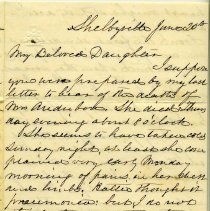 Shelbyville June 20th
My Beloved Daughter
I suppose
you were prepared by my last
letter to hear of the death of
Mrs She died
day evening about 8 o'clock.
She seems to have taken cold
Sunday night, at least she com
plained very early Monday
morning of pains in her chest
and Hattie thought of
pneumonia but I do not